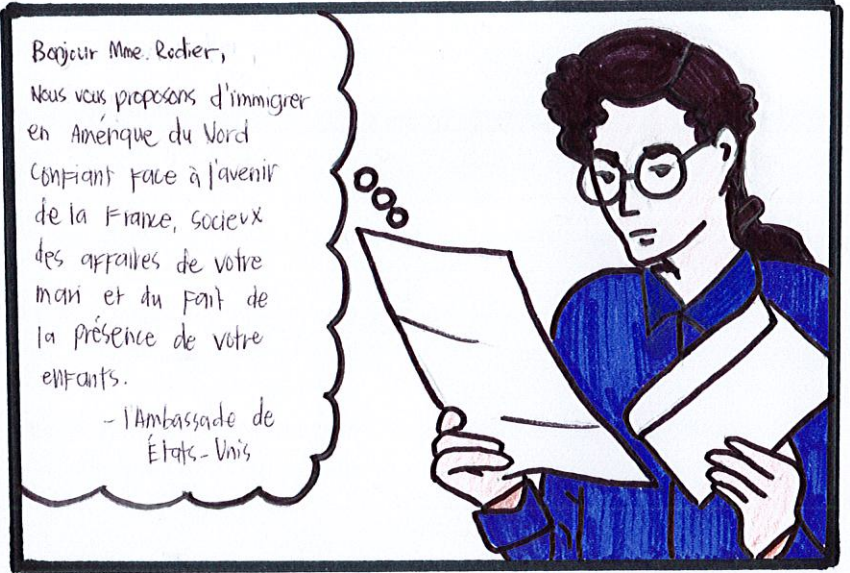 Bonjour Mme. Rodier,
Nous vous proposons d'immigrer
en Amérique du Nord
confiant face à l'avenir
de la France, socieux
des affaires de votre
mari et du fait de
la présence de votre
enfants.
- l'Ambassade de
États-Unis